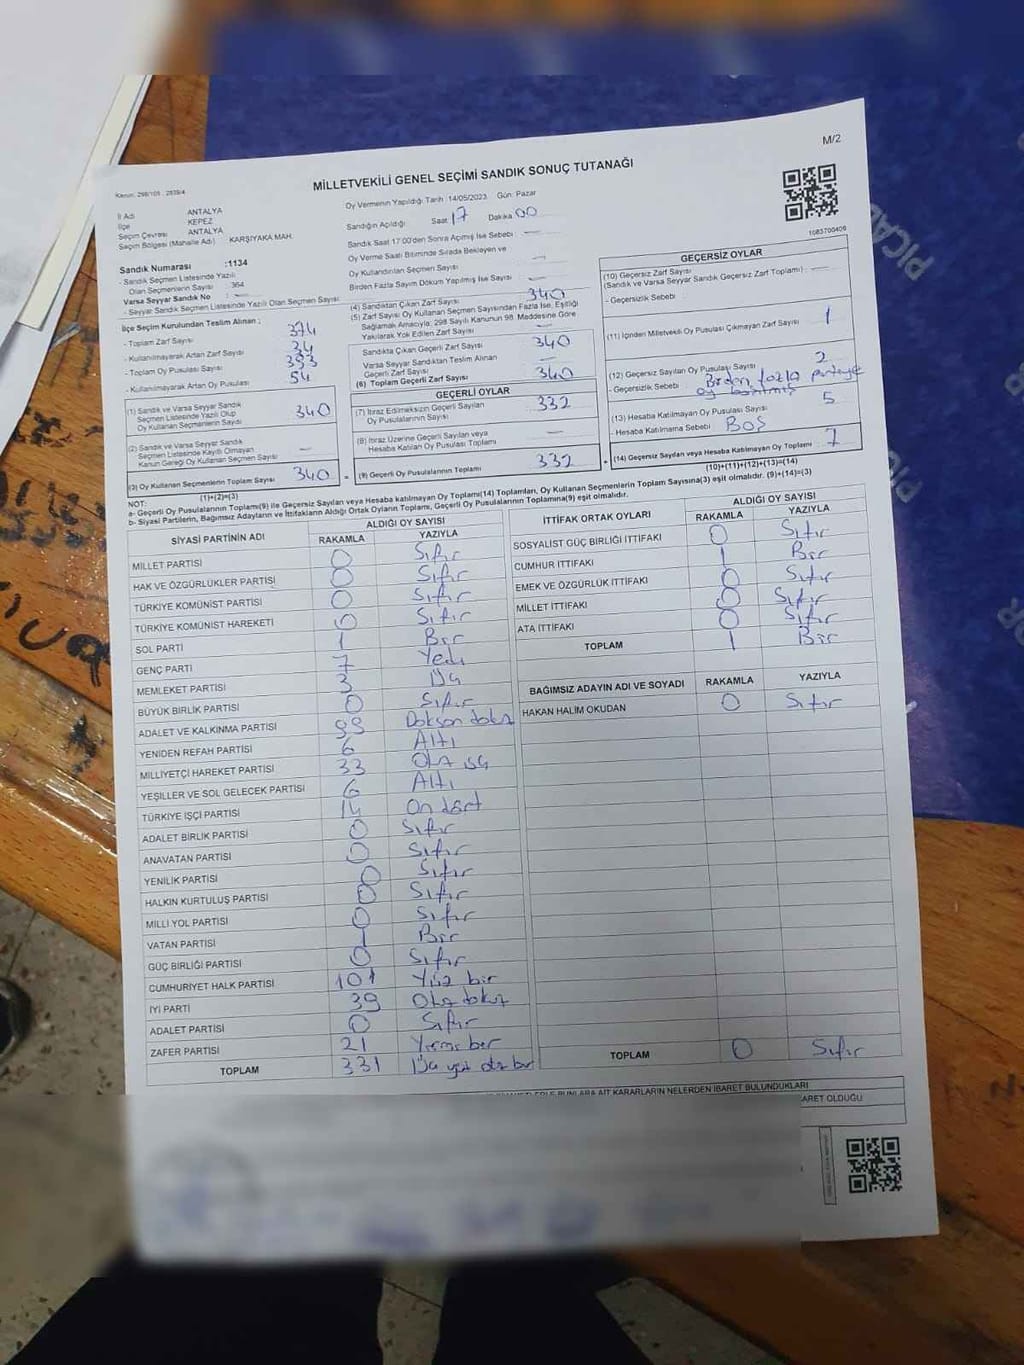 M/2
Kanun: 298/105 , 2839/4
MİLLETVEKİLİ GENEL SEÇİMİ SANDIK SONUÇ TUTANAĞI
1083700409
İl Adı ANTALYA
İlçe KEPEZ
Seçim Çevresi ANTALYA
Seçim Bölgesi (Mahalle Adı) KARŞIYAKA MAH.
Sandık Numarası :1134
- Sandık Seçmen Listesinde Yazılı
Olan Seçmenlerin Sayısı : 364
Varsa Seyyar Sandık No : —
- Seyyar Sandık Seçmen Listesinde Yazılı Olan Seçmen Sayısı:
İlçe Seçim Kurulundan Teslim Alınan ;
- Toplam Zarf Sayısı 374
- Kullanılmayarak Artan Zarf Sayısı 34
- Toplam Oy Pusulası Sayısı
- Kullanılmayarak Artan Oy Pusulası 54
(1) Sandık ve Varsa Seyyar Sandık
Seçmen Listesinde Yazılı Olup
Oy Kullanan Seçmenlerin Sayısı 340
(2) Sandık ve Varsa Seyyar Sandık
Seçmen Listesinde Kayıtlı Olmayan
Kanun Gereği Oy Kullanan Seçmen Sayısı —
(3) Oy Kullanan Seçmenlerin Toplam Sayısı 340
(1)+(2)=(3)
Oy Vermenin Yapıldığı Tarih :14/05/2023 Gün: Pazar
Sandığın Açıldığı Saat 17 Dakika 00
Sandık Saat 17:00'den Sonra Açılmış İse Sebebi : —
Oy Verme Saati Bitiminde Sırada Bekleyen ve
Oy Kullandırılan Seçmen Sayısı —
Birden Fazla Sayım Döküm Yapılmış İse Sayısı —
(4) Sandıktan Çıkan Zarf Sayısı 340
(5) Zarf Sayısı Oy Kullanan Seçmen Sayısından Fazla İse, Eşitliği
Sağlamak Amacıyla, 298 Sayılı Kanunun 98. Maddesine Göre
Yakılarak Yok Edilen Zarf Sayısı —
Sandıkta Çıkan Geçerli Zarf Sayısı 340
Varsa Seyyar Sandıktan Teslim Alınan
Geçerli Zarf Sayısı —
(6) Toplam Geçerli Zarf Sayısı 340
GEÇERLİ OYLAR
(7) İtiraz Edilmeksizin Geçerli Sayılan
Oy Pusulalarının Sayısı 332
(8) İtiraz Üzerine Geçerli Sayılan veya
Hesaba Katılan Oy Pusulası Toplamı —
(9) Geçerli Oy Pusulalarının Toplamı 332
GEÇERSİZ OYLAR
(10) Geçersiz Zarf Sayısı
(Sandık ve Varsa Seyyar Sandık Geçersiz Zarf Toplamı) : —
- Geçersizlik Sebebi
(11) İçinden Milletvekili Oy Pusulası Çıkmayan Zarf Sayısı 1
(12) Geçersiz Sayılan Oy Pusulası Sayısı 2
- Geçersizlik Sebebi Birden fazla partiye
oy basılmış
(13) Hesaba Katılmayan Oy Pusulası Sayısı 5
- Hesaba Katılmama Sebebi BOŞ
(14) Geçersiz Sayılan veya Hesaba Katılmayan Oy Toplamı 7
(10)+(11)+(12)+(13)=(14)
NOT:
a- Geçerli Oy Pusulalarının Toplamı(9) ile Geçersiz Sayılan veya Hesaba katılmayan Oy Toplamı(14) Toplamları, Oy Kullanan Seçmenlerin Toplam Sayısına(3) eşit olmalıdır. (9)+(14)=(3)
b- Siyasi Partilerin, Bağımsız Adayların ve İttifakların Aldığı Ortak Oyların Toplamı, Geçerli Oy Pusulalarının Toplamına(9) eşit olmalıdır.
SİYASİ PARTİNİN ADI ALDIĞI OY SAYISI
RAKAMLA YAZIYLA
MİLLET PARTİSİ 0 Sıfır
HAK VE ÖZGÜRLÜKLER PARTİSİ 0 Sıfır
TÜRKİYE KOMÜNİST PARTİSİ 0 Sıfır
TÜRKİYE KOMÜNİST HAREKETİ 0 Sıfır
SOL PARTİ 1 Bir
GENÇ PARTİ 7 Yedi
MEMLEKET PARTİSİ 3 Üç
BÜYÜK BİRLİK PARTİSİ 0 Sıfır
ADALET VE KALKINMA PARTİSİ 99 Doksan dokuz
YENİDEN REFAH PARTİSİ 6 Altı
MİLLİYETÇİ HAREKET PARTİSİ 33 Otuz üç
YEŞİLLER VE SOL GELECEK PARTİSİ 6 Altı
TÜRKİYE İŞÇİ PARTİSİ 14 On dört
ADALET BİRLİK PARTİSİ 0 Sıfır
ANAVATAN PARTİSİ 0 Sıfır
YENİLİK PARTİSİ 0 Sıfır
HALKIN KURTULUŞ PARTİSİ 0 Sıfır
MİLLİ YOL PARTİSİ 0 Sıfır
VATAN PARTİSİ 1 Bir
GÜÇ BİRLİĞİ PARTİSİ 0 Sıfır
CUMHURİYET HALK PARTİSİ 101 Yüz bir
İYİ PARTİ 39 Otuz dokuz
ADALET PARTİSİ 0 Sıfır
ZAFER PARTİSİ 21 Yirmi bir
TOPLAM 331 Üç yüz otuz bir
İTTİFAK ORTAK OYLARI ALDIĞI OY SAYISI
RAKAMLA YAZIYLA
SOSYALİST GÜÇ BİRLİĞİ İTTİFAKI 0 Sıfır
CUMHUR İTTİFAKI 1 Bir
EMEK VE ÖZGÜRLÜK İTTİFAKI 0 Sıfır
MİLLET İTTİFAKI 0 Sıfır
ATA İTTİFAKI 0 Sıfır
TOPLAM 1 Bir
BAĞIMSIZ ADAYIN ADI VE SOYADI RAKAMLA YAZIYLA
HAKAN HALİM OKUDAN 0 Sıfır
TOPLAM 0 Sıfır
BUNLARA AİT KARARLARIN NELERDEN İBARET BULUNDUKLARI
OLDUĞU
PICA